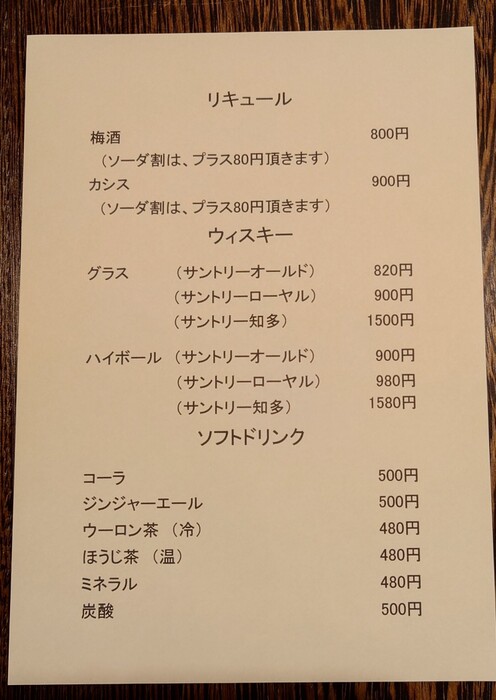 リキュール
梅酒 800円
（ソーダ割は、プラス80円頂きます）
カシス 900円
（ソーダ割は、プラス80円頂きます）
ウィスキー
グラス （サントリーオールド） 820円
（サントリーローヤル） 900円
（サントリー知多） 1500円
ハイボール （サントリーオールド） 900円
（サントリーローヤル） 980円
（サントリー知多） 1580円
ソフトドリンク
コーラ 500円
ジンジャーエール 500円
ウーロン茶 （冷） 480円
ほうじ茶 （温） 480円
ミネラル 480円
炭酸 500円